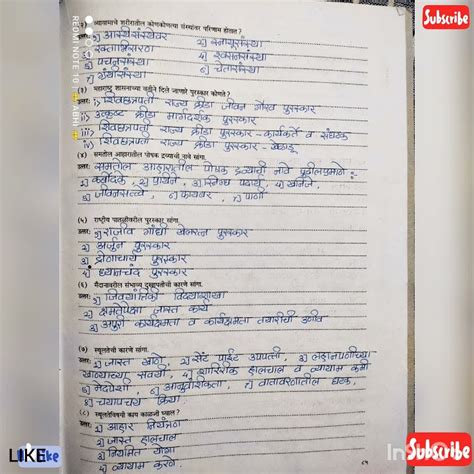 Subscribe
REDMI NOTE 10
२) व्यायामाचे शरीरातील कोणकोणत्या संस्थांवर परिणाम होतात ?
उत्तर: १) अस्थिसंस्था २) स्नायूसंस्था
३) रक्ताभिसरण ४) श्वसनसंस्था
५) पचनसंस्था ६) चेतासंस्था
७) ग्रंथीसंस्था
(३) महाराष्ट्र शासनाच्या वतीने दिले जाणारे पुरस्कार कोणते ?
उत्तर: i) शिवछत्रपती राज्य क्रीडा जीवन गौरव पुरस्कार
ii) उत्कृष्ट क्रीडा मार्गदर्शक पुरस्कार
iii) शिवछत्रपती राज्य क्रीडा पुरस्कार - कार्यकर्ते व संघटक
iv) शिवछत्रपती राज्य क्रीडा पुरस्कार - खेळाडू
(४) समतोल आहारातील पोषक द्रव्याची नावे सांगा.
उत्तर: समतोल आहारातील पोषक द्रव्याची नावे पुढीलप्रमाणे :-
१) कर्बोदके २) प्रथिने ३) स्निग्ध पदार्थ ४) खनिजे
५) जीवनसत्त्वे ६) फायबर ७) पाणी
(५) राष्ट्रीय पातळीवरील पुरस्कार सांगा.
उत्तर: १) राजीव गांधी खेलरत्न पुरस्कार
२) अर्जुन पुरस्कार
३) द्रोणाचार्य पुरस्कार
४) ध्यानचंद पुरस्कार
(६) मैदानावरील संभाव्य दुखापतीची कारणे सांगा.
उत्तर:
२) क्षमतेपेक्षा जास्त कार्य
३) अपुरी कार्यक्षमता व कार्यक्षमता तयारीची उणीव
(७) स्थूलतेची कारणे सांगा.
उत्तर: १) जास्त खाणे २) सेट पॉईंट उपपत्ती ३) लहानपणीच्या
खाण्याच्या सवयी ४) शारीरिक हालचाल व व्यायाम कमी
५) मेदपेशी ६) आनुवंशिकता ७) वातावरणातील घटक
८) चयापचय क्रिया
(८) स्थूलतेविषयी काय काळजी घ्याल ?
उत्तर: १) आहार नियंत्रण
२) जास्त हालचाल
३) नियमित योगा
४) व्यायाम करणे
LIKE
Subscribe